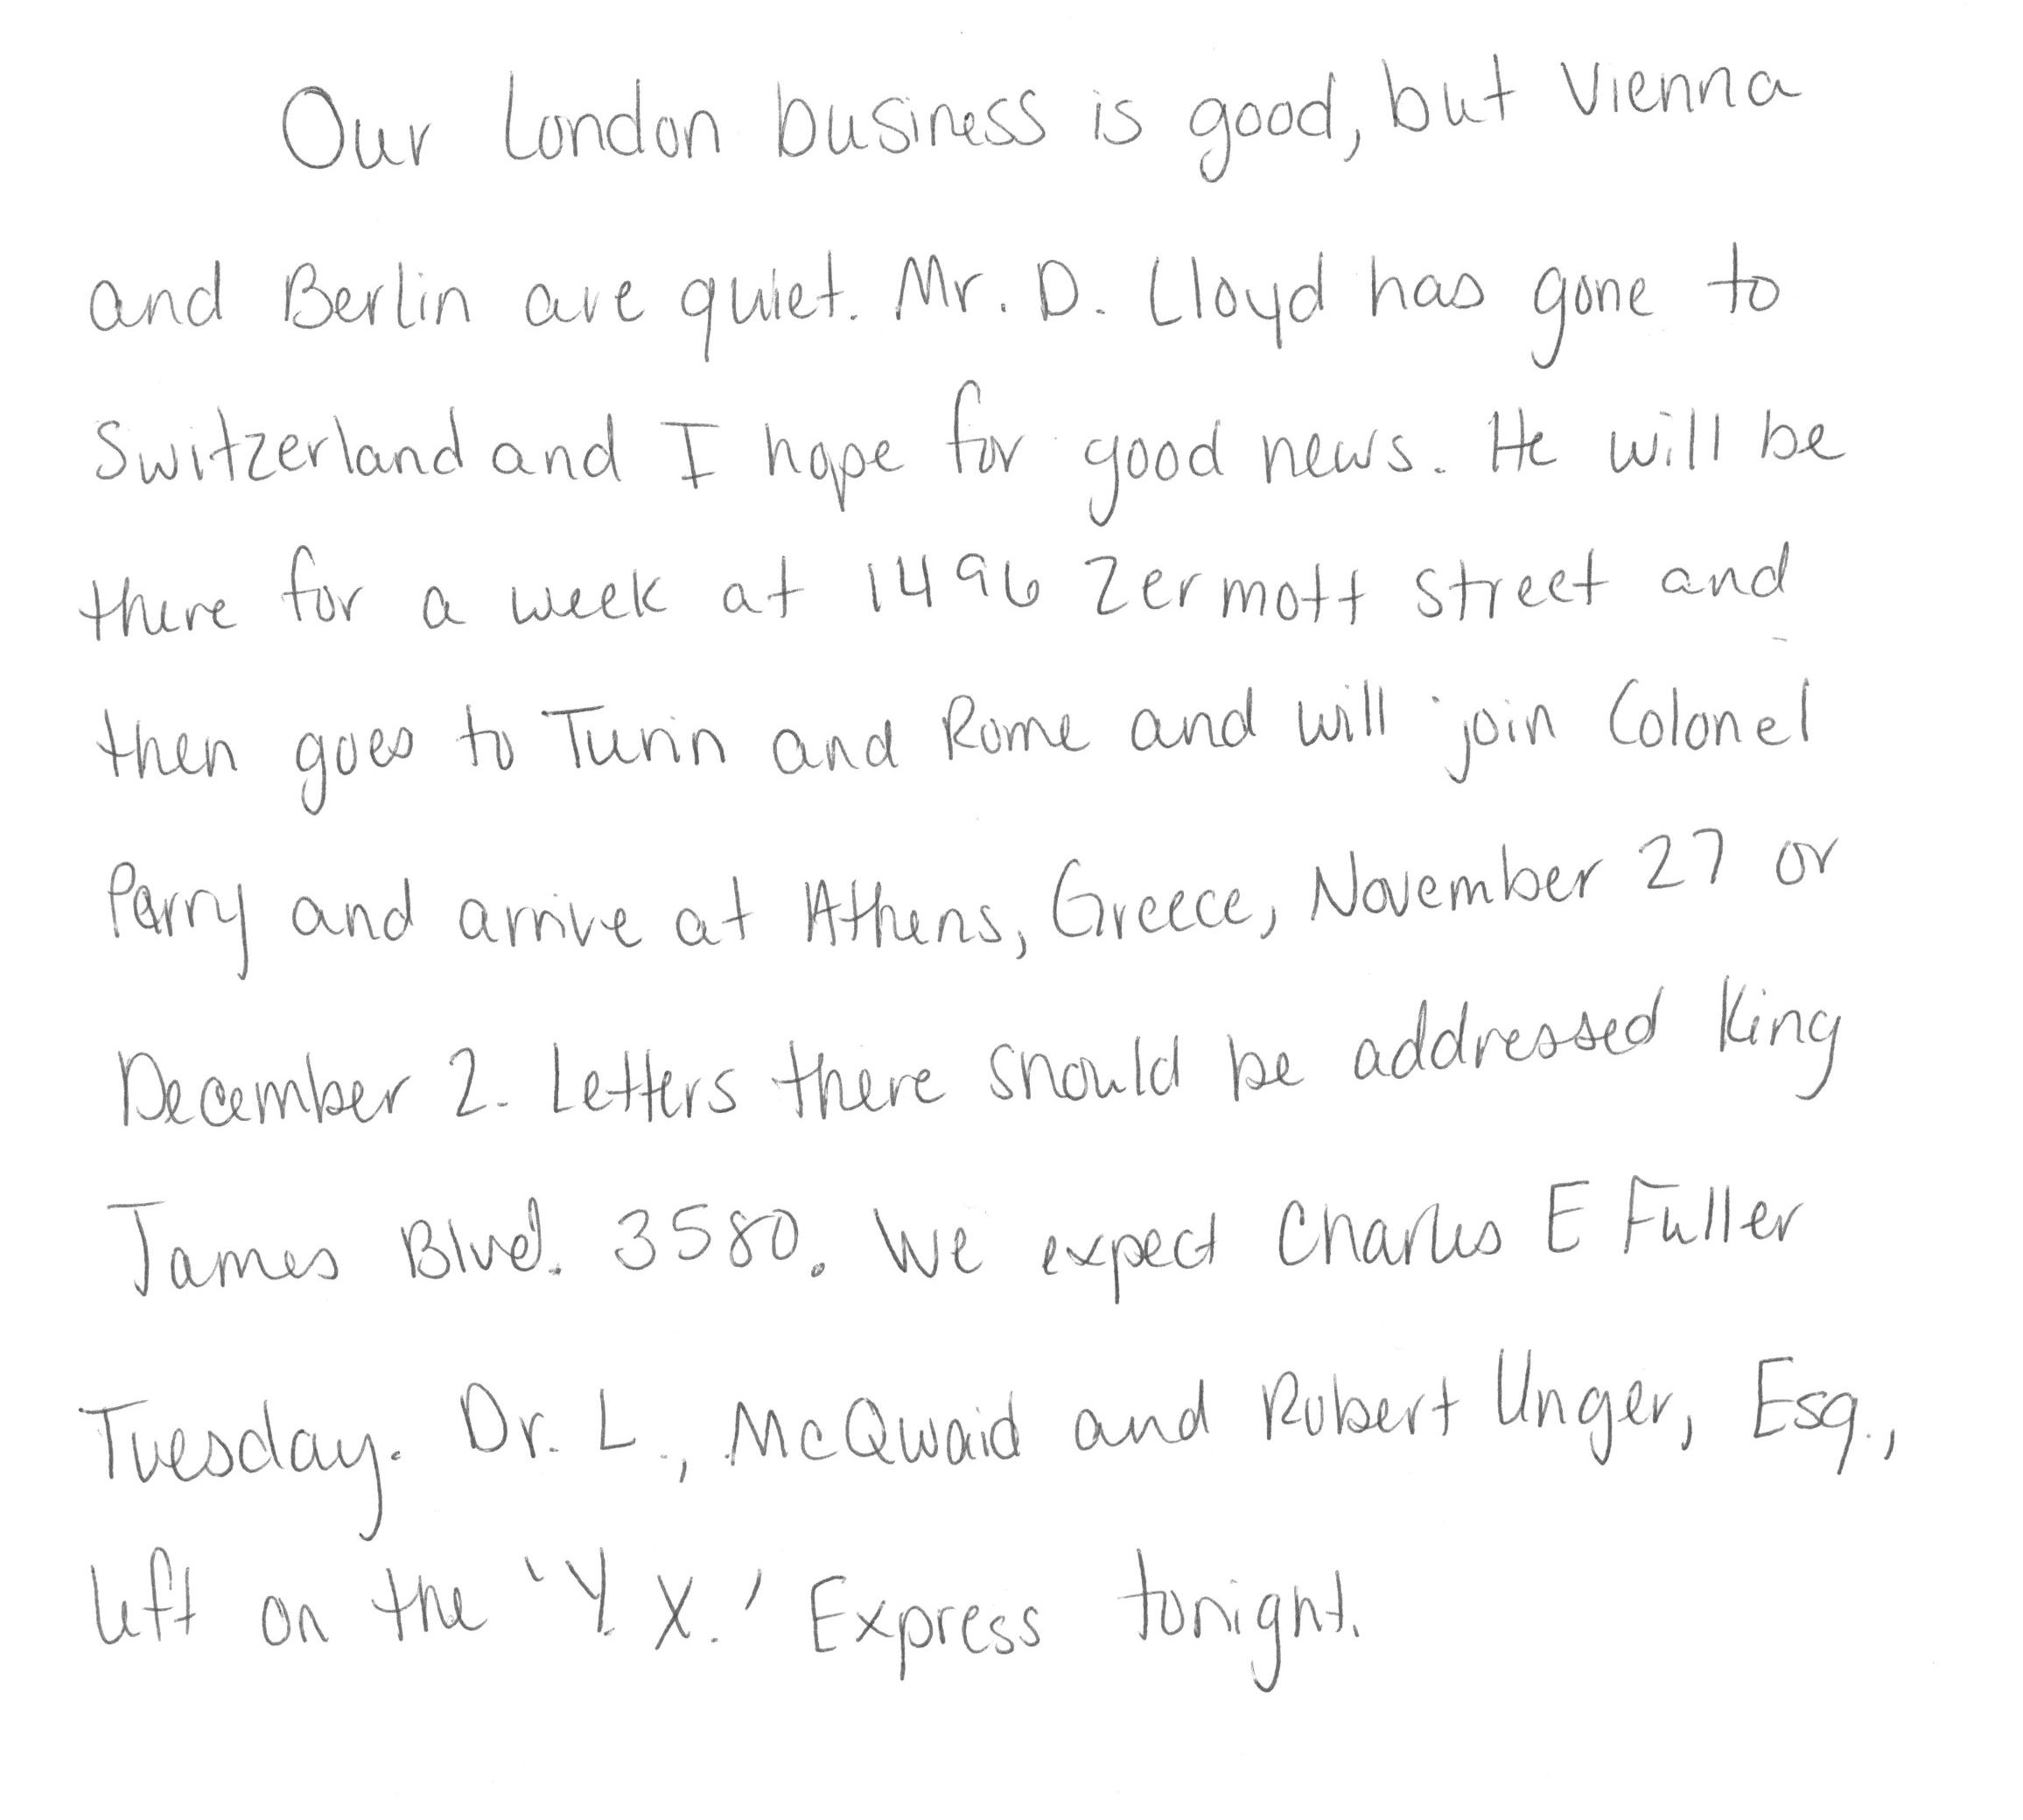 Our London business is good, but Vienna
and Berlin are quiet. Mr. D. Lloyd has gone to
Switzerland and I hope for good news. He will be
there for a week at 1496 Zermott street and
then goes to Turin and Rome and will join Colonel
Parry and arrive at Athens, Greece, November 27 or
December 2. Letters there should be addressed King
James Blvd. 3580. We expect Charles E Fuller
Tuesday. Dr. L., McQwaid and Robert Unger, Esq.,
left on the 'Y. X.' Express tonight.